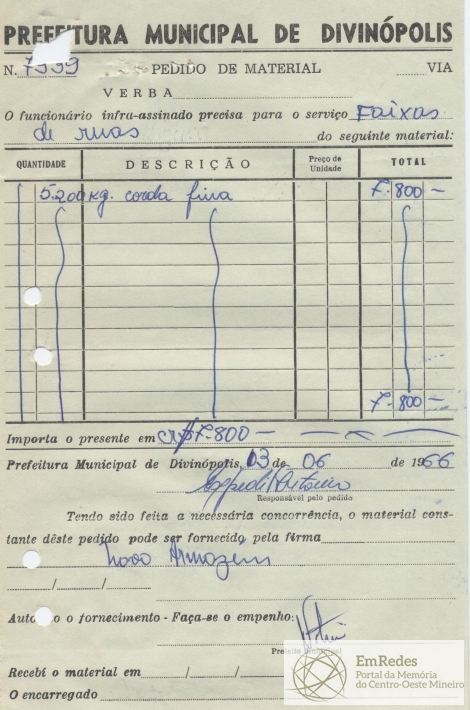 PREFEITURA MUNICIPAL DE DIVINÓPOLIS
N. 7999 PEDIDO DE MATERIAL VIA
VERBA
O funcionário infra-assinado precisa para o serviço Faixas
de ruas do seguinte material:
QUANTIDADE DESCRIÇÃO Preço de Unidade TOTAL
5.200 kg. corda fina 7.800 —
7.800 —
Importa o presente em cr$ 7.800 —
Prefeitura Municipal de Divinópolis, 03 de 06 de 1966
Responsável pelo pedido
Tendo sido feita a necessária concorrência, o material cons-
tante dêste pedido pode ser fornecido pela firma
Novo Armazém
/ / /
o fornecimento - Faça-se o empenho:
Prefeito Municipal
Recebí o material em / / /
O encarregado
EmRedes
Portal da Memória
do Centro-Oeste Mineiro